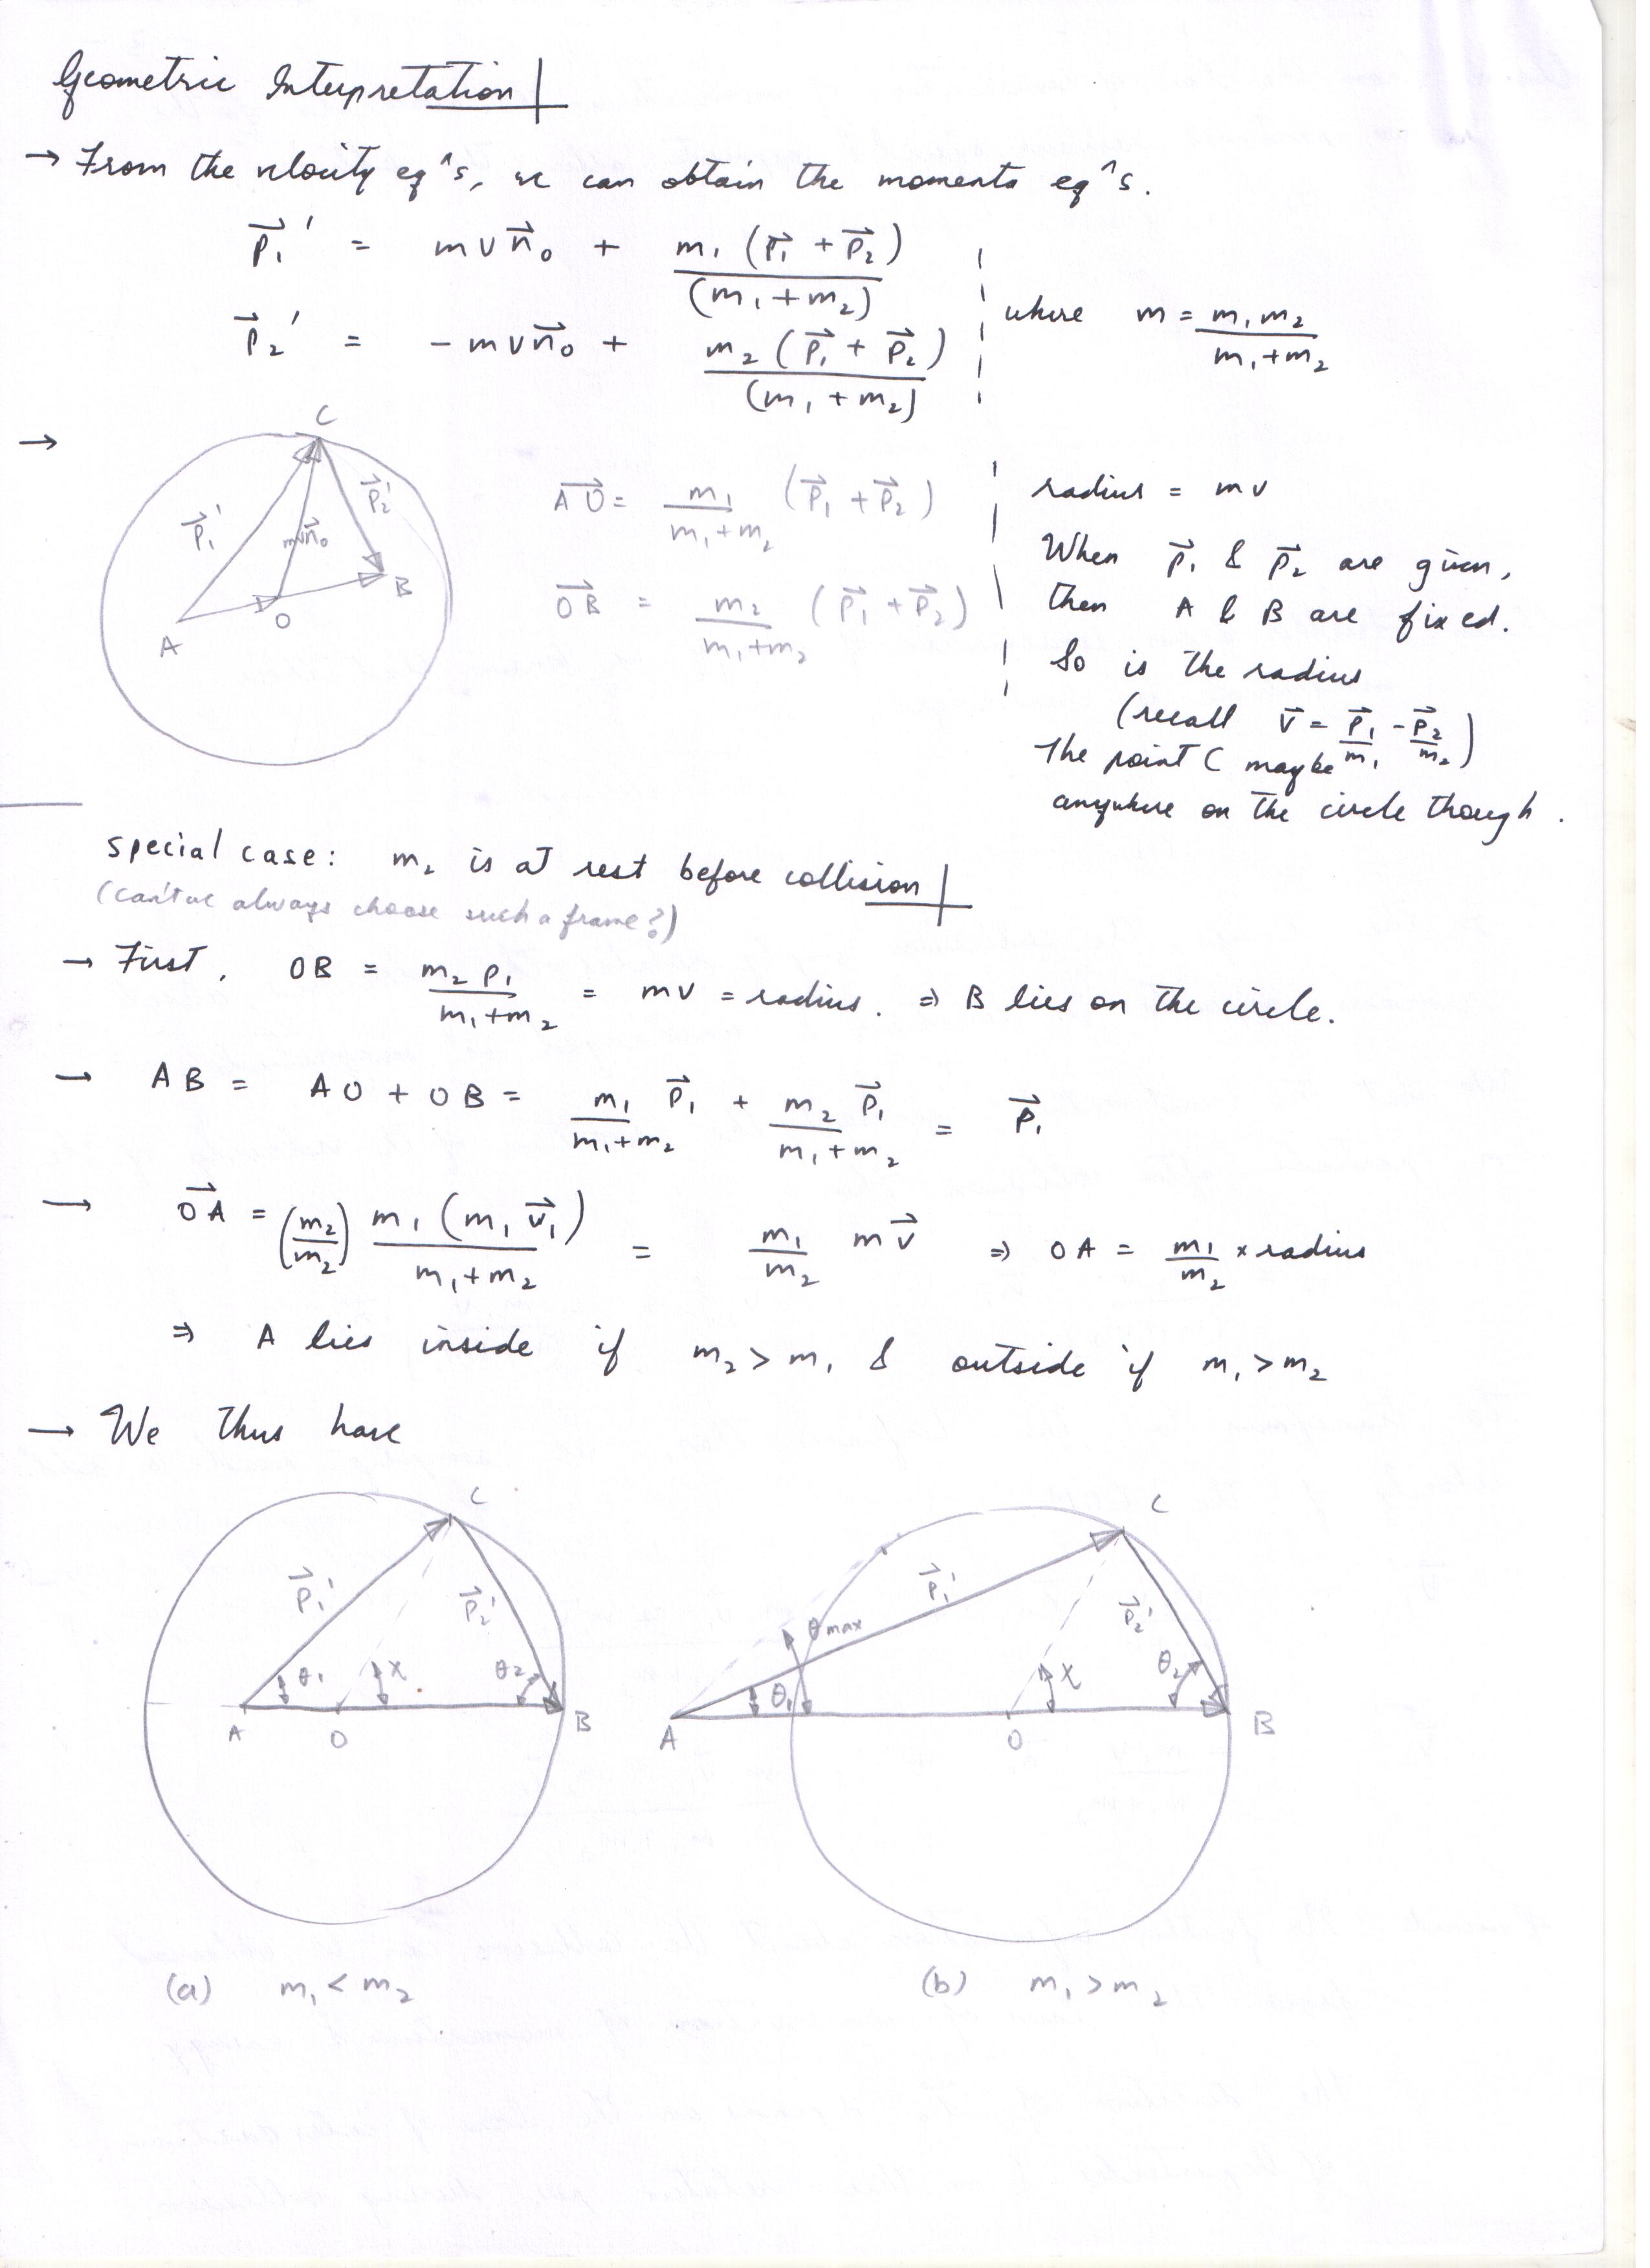 Geometric Interpretation
→ From the velocity eqⁿs, we can obtain the momenta eqⁿs.
p⃗₁' = m v n⃗₀ + m₁ (p⃗₁ + p⃗₂) / (m₁ + m₂)
p⃗₂' = - m v n⃗₀ + m₂ (p⃗₁ + p⃗₂) / (m₁ + m₂)
where m = m₁ m₂ / m₁ + m₂
→
C
p⃗₁'
p⃗₂'
mvn⃗₀
A
O
B
A⃗O⃗ = m₁ / m₁ + m₂ (p⃗₁ + p⃗₂)
O⃗B⃗ = m₂ / m₁ + m₂ (p⃗₁ + p⃗₂)
radius = mv
When p⃗₁ & p⃗₂ are given,
then A & B are fixed.
So is the radius
(recall v⃗ = p⃗₁/m₁ - p⃗₂/m₂)
The point C maybe
anywhere on the circle though.
special case: m₂ is at rest before collision
(can't we always choose such a frame?)
→ First, OB = m₂ p₁ / m₁ + m₂ = mv = radius. ⇒ B lies on the circle.
→ AB = AO + OB = m₁ / m₁ + m₂ p⃗₁ + m₂ p⃗₁ / m₁ + m₂ = p⃗₁
→ O⃗A⃗ = (m₂/m₂) m₁ (m₁ v⃗₁) / m₁ + m₂ = m₁/m₂ m v⃗ ⇒ OA = m₁/m₂ × radius
⇒ A lies inside if m₂ > m₁ & outside if m₁ > m₂
→ We thus have
C
p⃗₁'
p⃗₂'
θ₁
χ
θ₂
A
O
B
(a) m₁ < m₂
C
p⃗₁'
p⃗₂'
θmax
θ₁
χ
θ₂
A
O
B
(b) m₁ > m₂